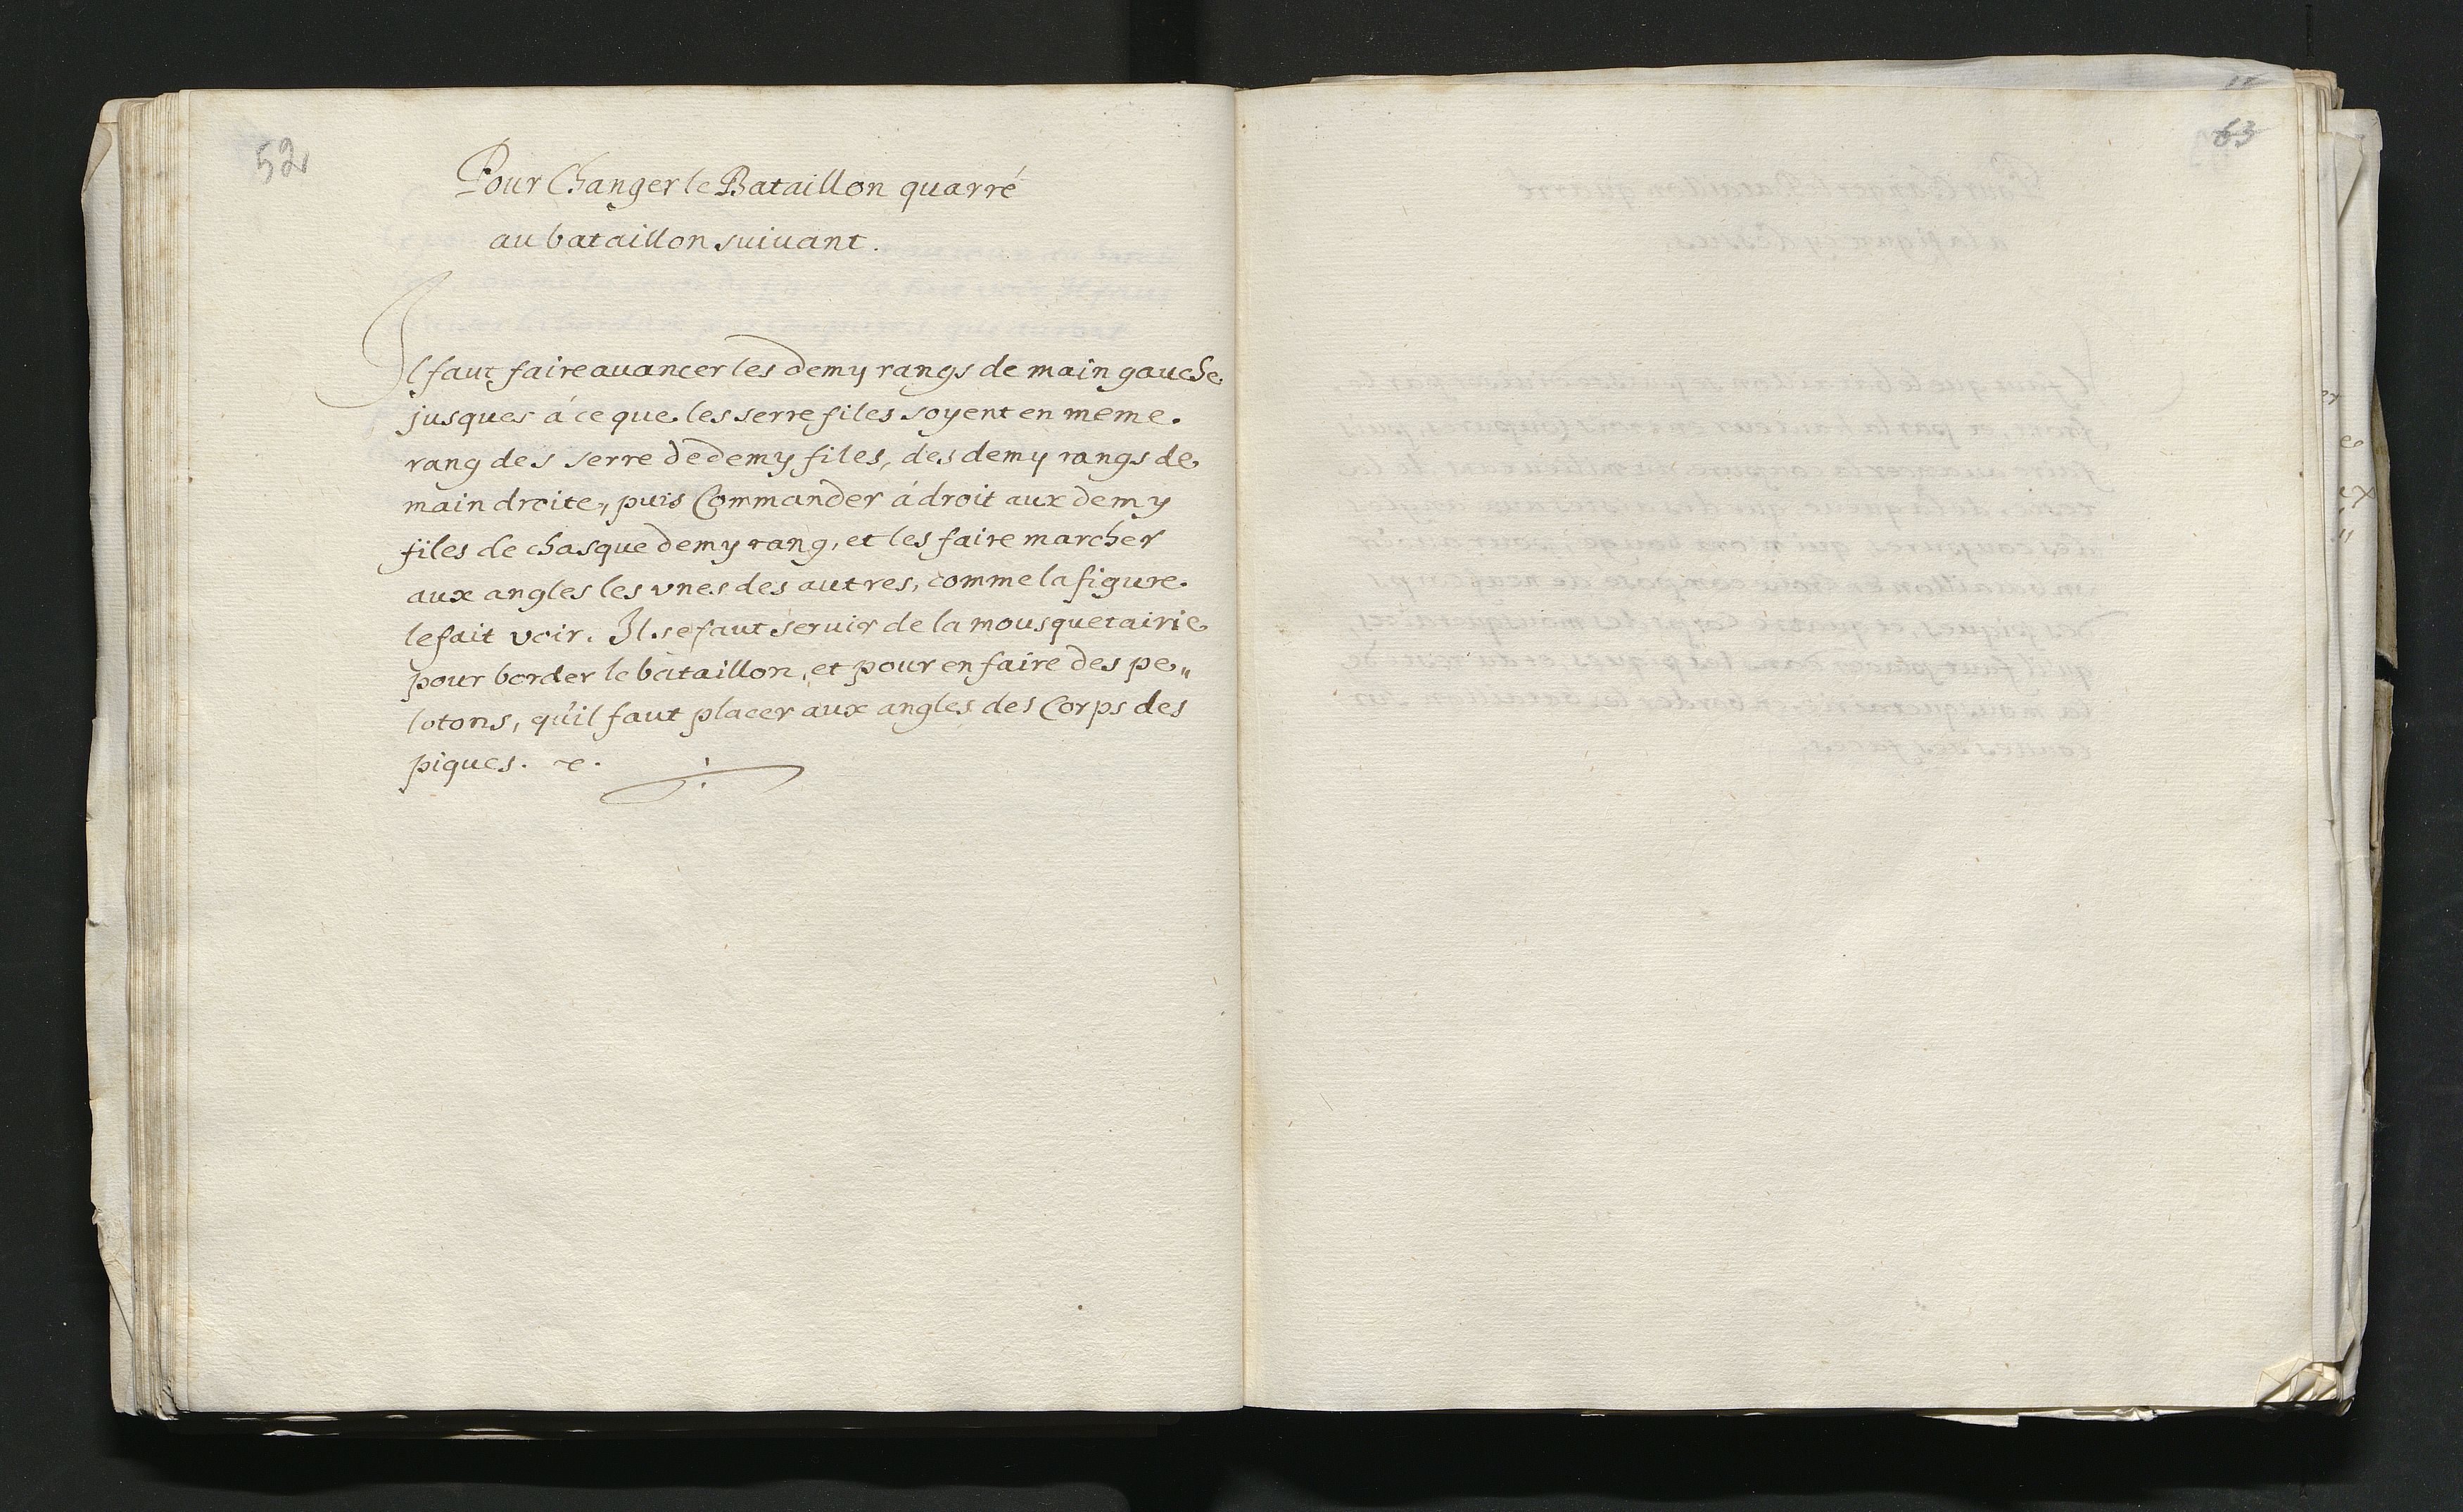 52
Pour Changer le Bataillon quarré
au bataillon suivant.
Il faut faire auancer les demy rangs de main gauche
jusques á ce que les serre files soyent en meme.
rang des serre de demy files, des demy rangs de
main droite, puis Commander á droit aux demy
files de chasque demy rang, et les faire marcher
aux angles les vnes des autres, comme la figure.
le fait voir. Il se faut seruir de la mousquetairie
pour border le bataillon, et pour en faire des pe„
lotons, qu'il faut placer aux angles des Corps des
piques. &.
63